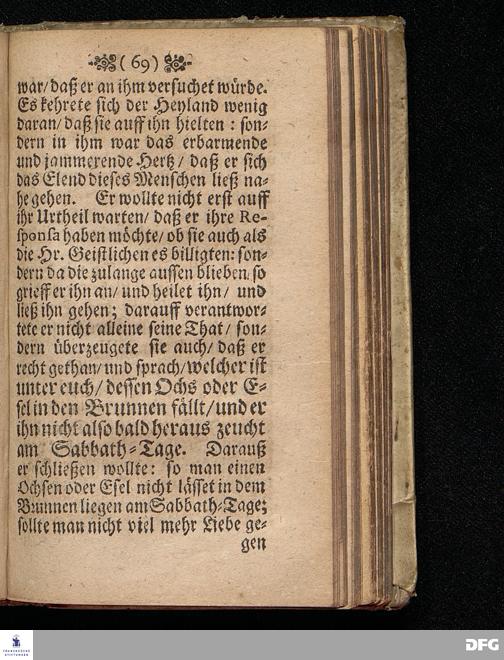 ( 69 )
war/ daß er an ihm versuchet würde.
Es kehrete sich der Heyland wenig
daran/ daß sie auff ihn hielten : son-
dern in ihm war das erbarmende
und jammerende Hertz/ daß er sich
das Elend dieses Menschen ließ na-
he gehen. Er wollte nicht erst auff
ihr Urtheil warten/ daß er ihre Re-
sponsa haben möchte/ ob sie auch als
die Hr. Geistlichen es billigten: son-
dern da die zulange aussen blieben/ so
grieff er ihn an/ und heilet ihn/ und
ließ ihn gehen; darauff verantwor-
tete er nicht alleine seine That/ son-
dern überzeugete sie auch/ daß er
recht gethan/ und sprach/ welcher ist
unter euch/ dessen Ochs oder E-
sel in den Brunnen fällt/ und er
ihn nicht alsobald heraus zeucht
am Sabbath-Tage. Darauß
er schließen wollte: so man einen
Ochsen oder Esel nicht lässet in dem
Brunnen liegen am Sabbath-Tage;
sollte man nicht viel mehr Liebe ge-
gen
FRANCKESCHE STIFTUNGEN
DFG